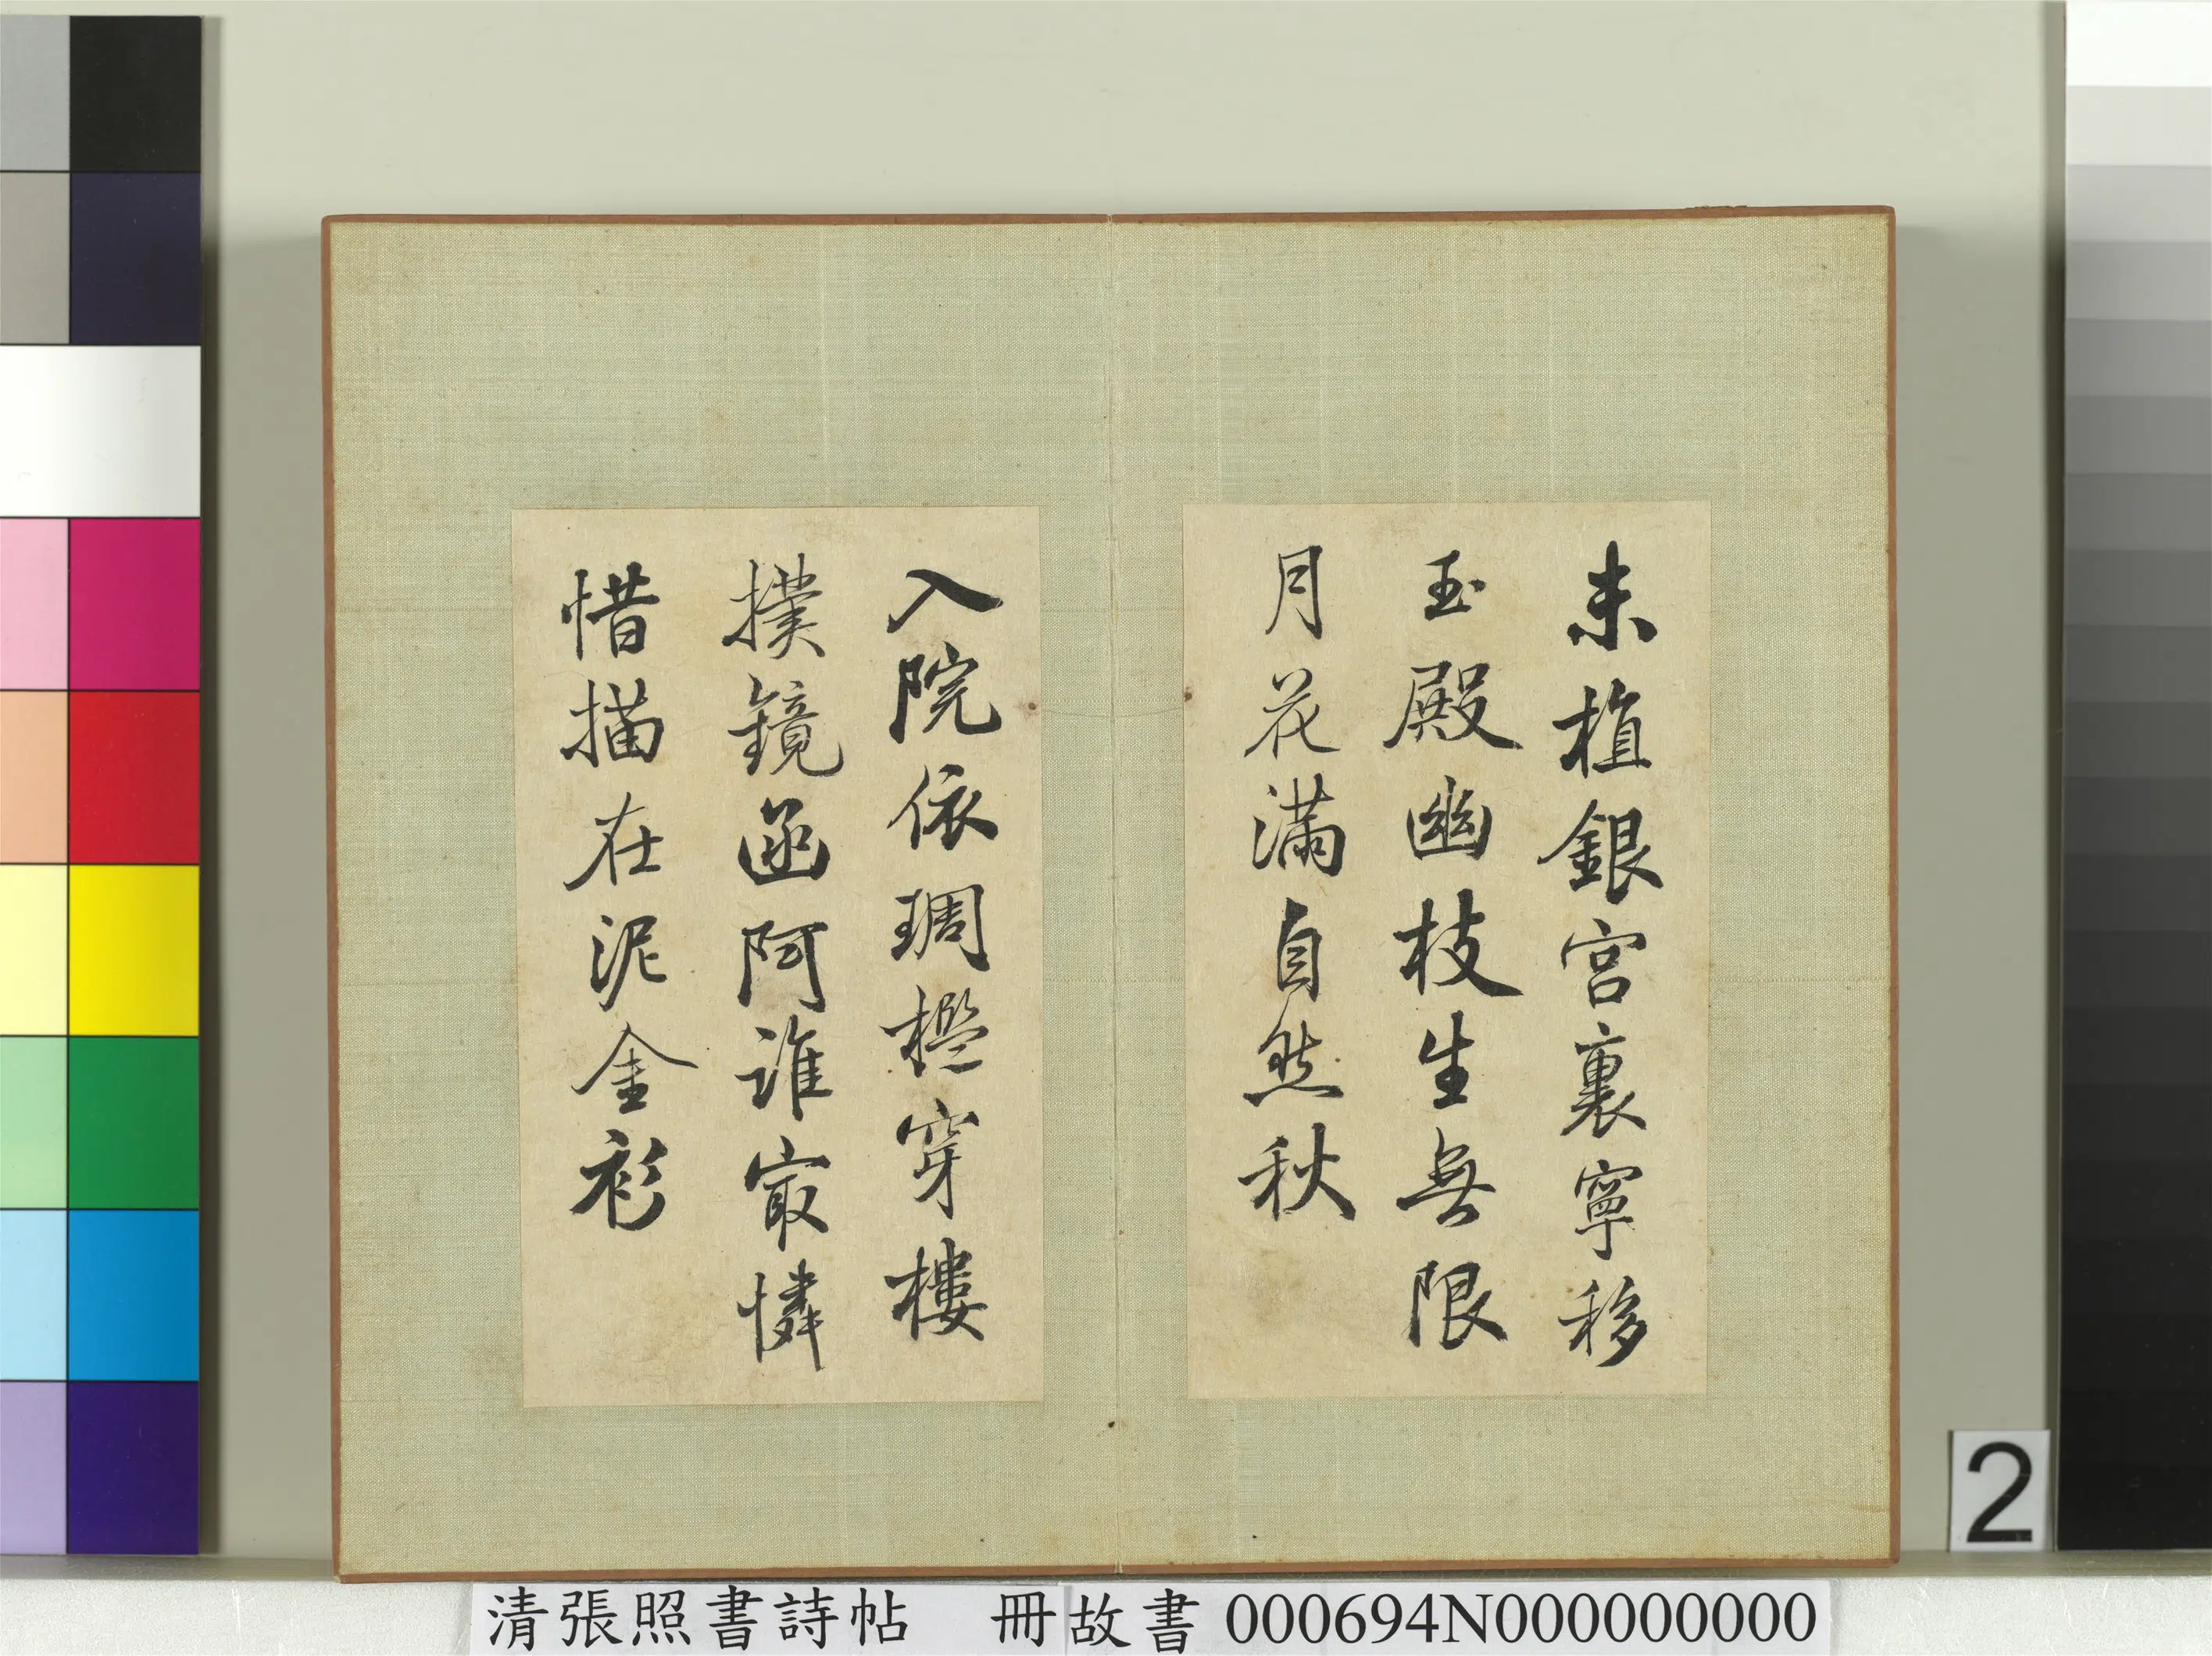 未植銀宮裏寧移
玉殿幽枝生無限
月花滿自然秋
入院依琱檻穿樓
撲鏡函阿誰㝡憐
惜描在泥金衫
2
清張照書詩帖 冊故書 000694N000000000